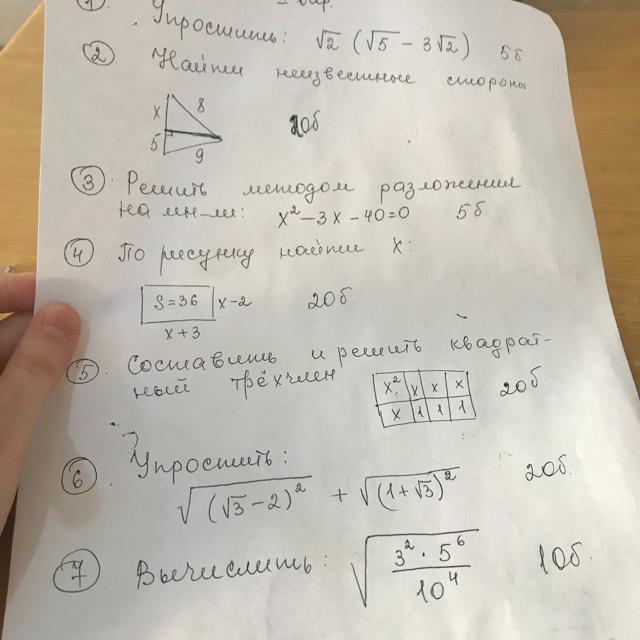 ①
Упростить: √2 (√5 - 3√2) 5б
② Найти неизвестные стороны
x 8
5 9
20б
③ Решить методом разложения
на мн-ли: x² - 3x - 40 = 0 5б
④ По рисунку найти x:
S = 36 x - 2 20б.
x + 3
⑤ Составить и решить квадрат-
ный трёхчлен. 20б
x² x x x
x 1 1 1
⑥ Упростить: 20б.
√(√3 - 2)² + √(1 + √3)²
⑦ Вычислить: √(3² · 5⁶ / 10⁴) 10б.